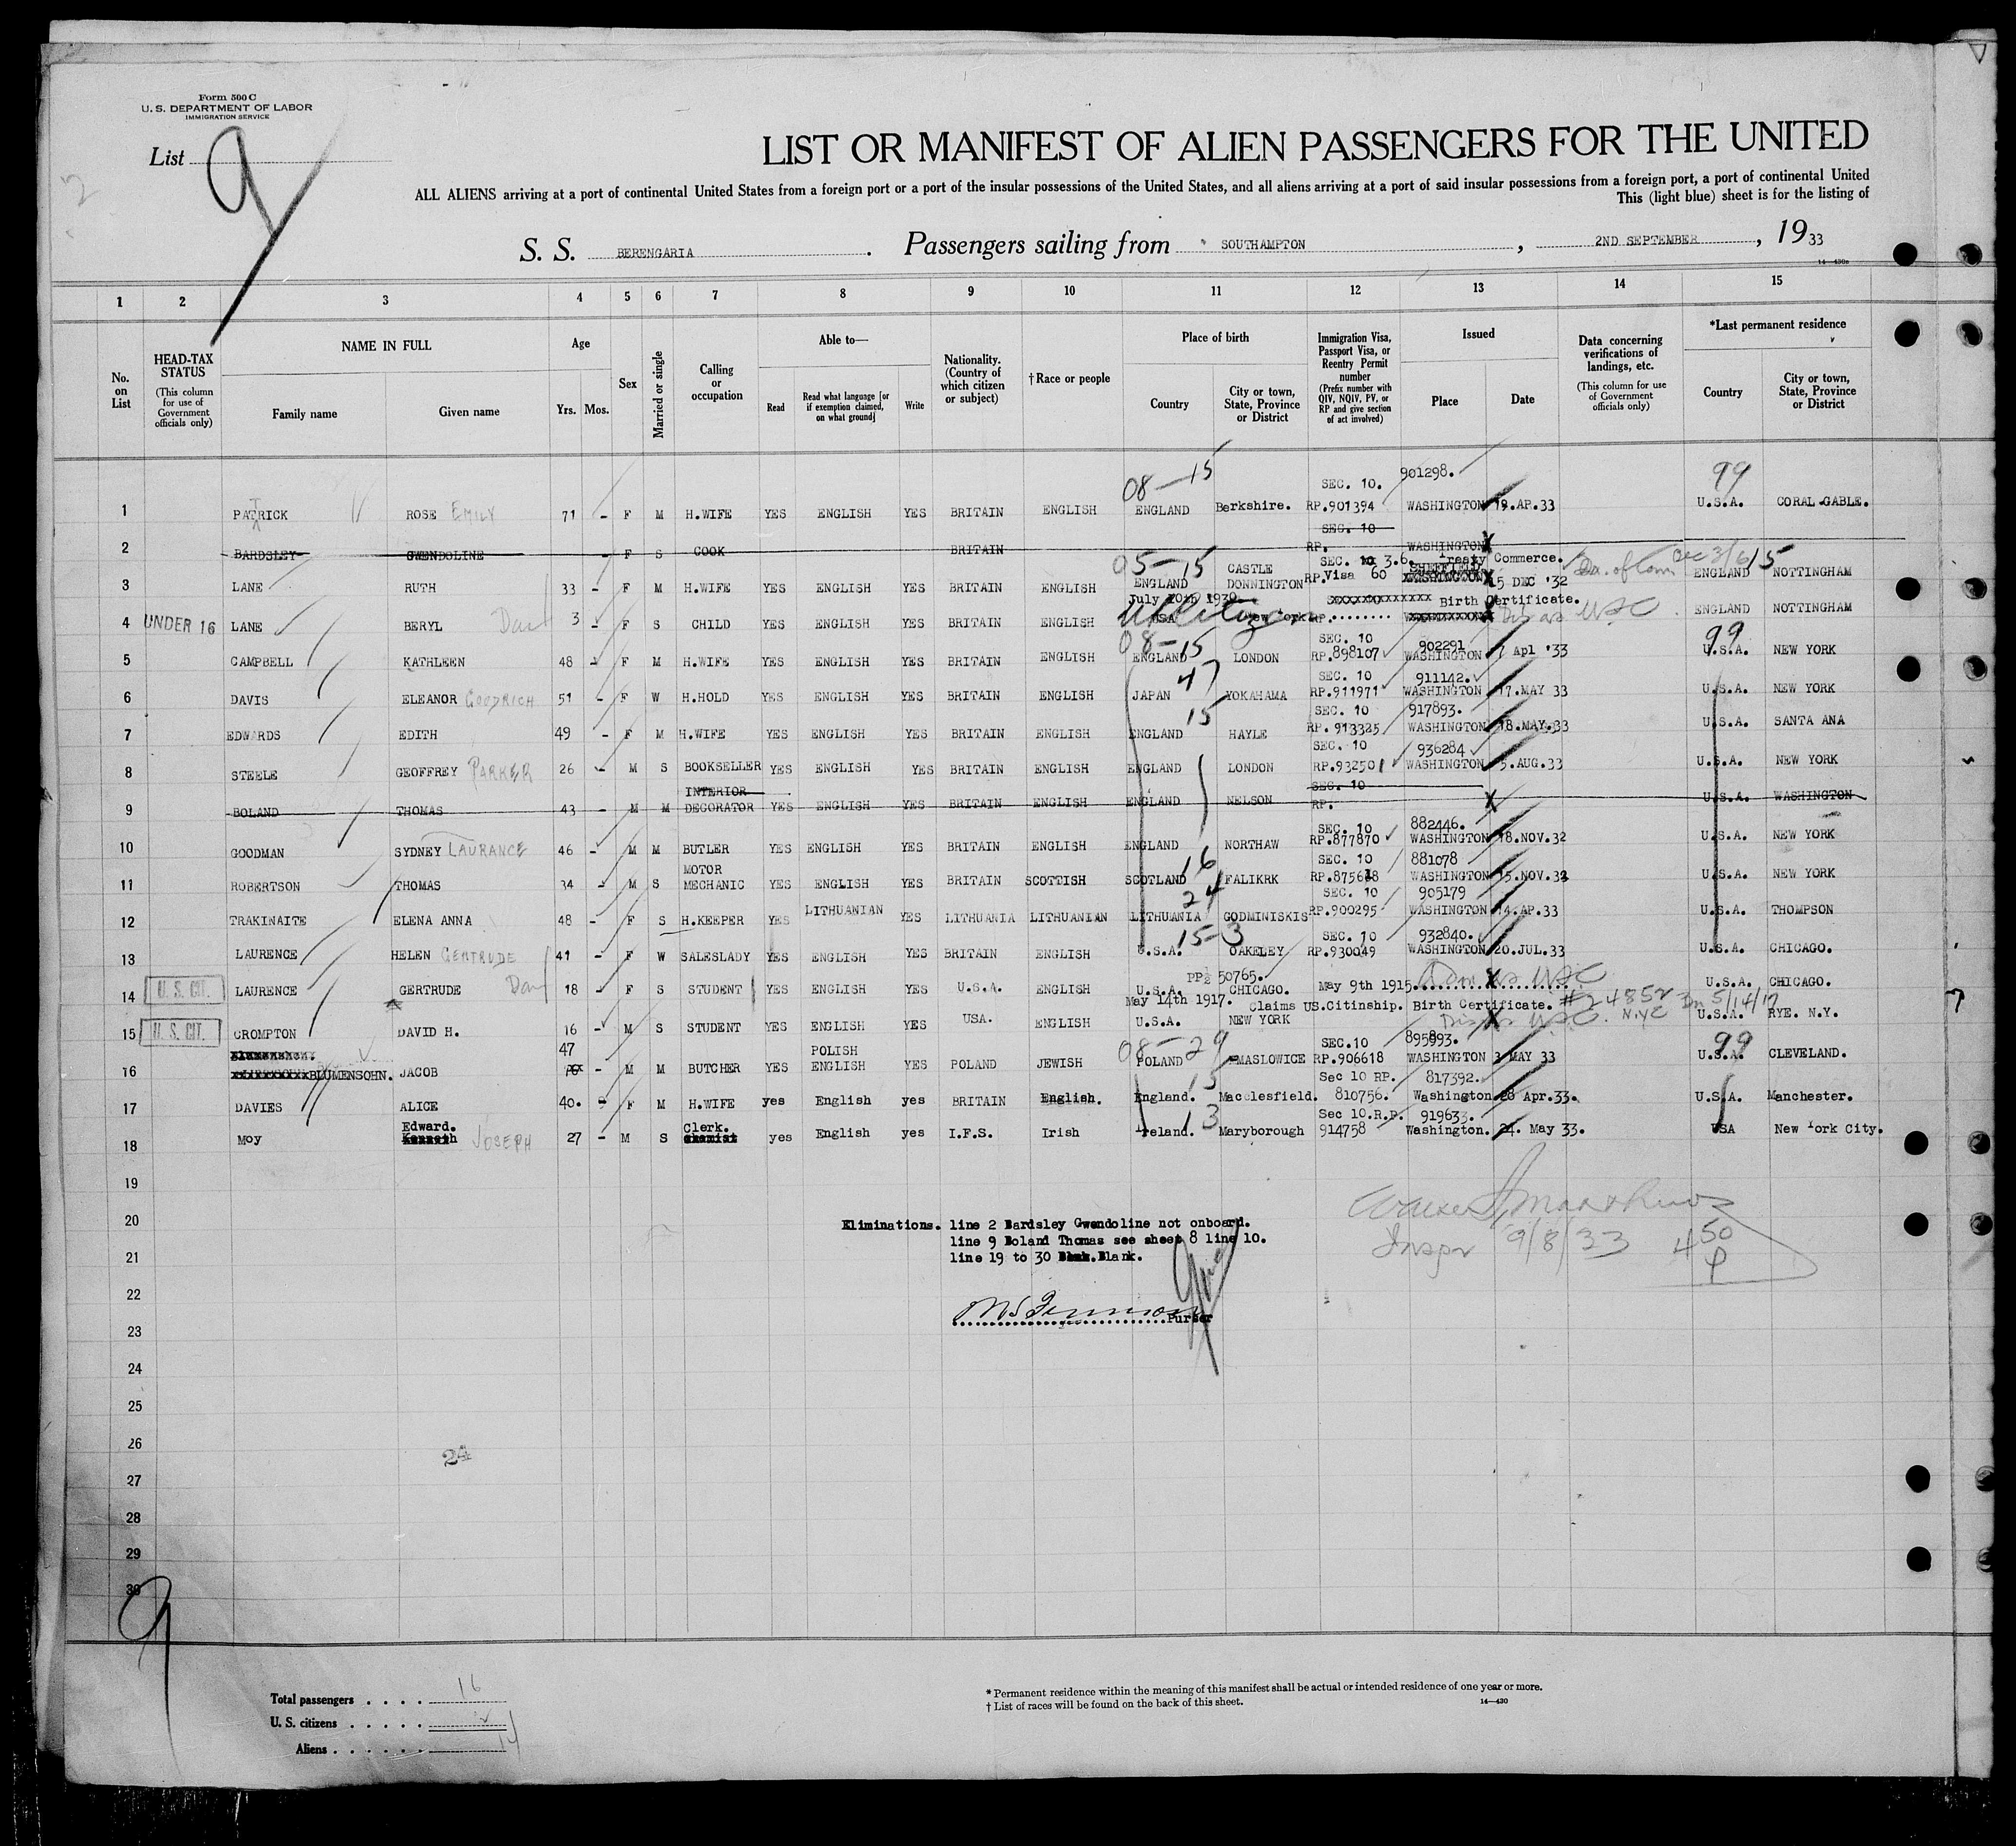 Form 500 C
U. S. DEPARTMENT OF LABOR
IMMIGRATION SERVICE
List 9
LIST OR MANIFEST OF ALIEN PASSENGERS FOR THE UNITED
ALL ALIENS arriving at a port of continental United States from a foreign port or a port of the insular possessions of the United States, and all aliens arriving at a port of said insular possessions from a foreign port, a port of continental United
This (light blue) sheet is for the listing of
S. S. BERENGARIA. Passengers sailing from SOUTHAMPTON, 2ND SEPTEMBER, 1933
14—430a
1 2 3 4 5 6 7 8 9 10 11 12 13 14 15
No. on List
HEAD-TAX STATUS (This column for use of Government officials only)
NAME IN FULL Family name Given name
Age Yrs. Mos.
Sex
Married or single
Calling or occupation
Able to— Read Read what language [or if exemption claimed, on what ground] Write
Nationality. (Country of which citizen or subject)
†Race or people
Place of birth Country City or town, State, Province or District
Immigration Visa, Passport Visa, or Reentry Permit number (Prefix number with QIV, NQIV, PV, or RP and give section of act involved)
Issued Place Date
Data concerning verifications of landings, etc. (This column for use of Government officials only)
*Last permanent residence Country City or town, State, Province or District
08-15 SEC. 10. 901298. 99
1 PATRICK ROSE EMILY 71 - F M H.WIFE YES ENGLISH YES BRITAIN ENGLISH ENGLAND Berkshire. RP.901394 WASHINGTON 19.AP.33 U.S.A. CORAL GABLE.
SEC. 10
2 BARDSLEY GWENDOLINE - F S COOK BRITAIN RP. WASHINGTON
05-15 SEC. 10 3.6. Treaty Commerce.
3 LANE RUTH 33 - F M H.WIFE YES ENGLISH YES BRITAIN ENGLISH ENGLAND CASTLE DONNINGTON RP. Visa 60 SHEFFIELD 15 DEC '32 ENGLAND NOTTINGHAM
July 10th 1930 Birth Certificate.
4 UNDER 16 LANE BERYL Dau 3 - F S CHILD YES ENGLISH YES BRITAIN ENGLISH USA New York RP. ENGLAND NOTTINGHAM
08-15 SEC. 10 902291 99
5 CAMPBELL KATHLEEN 48 - F M H.WIFE YES ENGLISH YES BRITAIN ENGLISH ENGLAND LONDON RP.898107 WASHINGTON 7 Apl '33 U.S.A. NEW YORK
47 SEC. 10 911142.
6 DAVIS ELEANOR GOODRICH 51 - F W H.HOLD YES ENGLISH YES BRITAIN ENGLISH JAPAN YOKAHAMA RP.911971 WASHINGTON 17.MAY 33 U.S.A. NEW YORK
15 SEC. 10 917893.
7 EDWARDS EDITH 49 - F M H.WIFE YES ENGLISH YES BRITAIN ENGLISH ENGLAND HAYLE RP. 913325 WASHINGTON 18.MAY.33 U.S.A. SANTA ANA
SEC. 10 936284
8 STEELE GEOFFREY PARKER 26 - M S BOOKSELLER YES ENGLISH YES BRITAIN ENGLISH ENGLAND LONDON RP.932501 WASHINGTON 5.AUG.33 U.S.A. NEW YORK
INTERIOR SEC. 10
9 BOLAND THOMAS 43 - M M DECORATOR YES ENGLISH YES BRITAIN ENGLISH ENGLAND NELSON RP. U.S.A. WASHINGTON
SEC. 10 882446.
10 GOODMAN SYDNEY LAURANCE 46 - M M BUTLER YES ENGLISH YES BRITAIN ENGLISH ENGLAND NORTHAW RP.877870 WASHINGTON 18.NOV.32 U.S.A. NEW YORK
MOTOR 16 SEC. 10 881078
11 ROBERTSON THOMAS 34 - M S MECHANIC YES ENGLISH YES BRITAIN SCOTTISH SCOTLAND FALIKRK RP.875618 WASHINGTON 15.NOV.32 U.S.A. NEW YORK
24 SEC. 10 905179
12 TRAKINAITE ELENA ANNA 48 - F S H.KEEPER YES LITHUANIAN YES LITHUANIA LITHUANIAN LITHUANIA GODMINISKIS RP.900295 WASHINGTON 14.AP.33 U.S.A. THOMPSON
15-3 SEC. 10 932840.
13 LAURENCE HELEN GERTRUDE 41 - F W SALESLADY YES ENGLISH YES BRITAIN ENGLISH U.S.A. OAKELEY RP.930049 WASHINGTON 20.JUL.33 U.S.A. CHICAGO.
PP½ 50765. Adm as USC
14 U. S. CIT. LAURENCE GERTRUDE Dau 18 - F S STUDENT YES ENGLISH YES U.S.A. ENGLISH U.S.A. CHICAGO. May 9th 1915 U.S.A. CHICAGO.
May 14th 1917. Claims US.Citinship. Birth Certificate. #24852 5/14/17
15 U. S. CIT. CROMPTON DAVID H. 16 - M S STUDENT YES ENGLISH YES USA. ENGLISH U.S.A. NEW YORK N.Y.C U.S.A. RYE. N.Y.
47 POLISH 08-29 SEC.10 895893. 99
16 BLUMENSOHN. JACOB - M M BUTCHER YES ENGLISH YES POLAND JEWISH POLAND MASLOWICE RP.906618 WASHINGTON 3 MAY 33 U.S.A. CLEVELAND.
15 Sec 10 RP. 817392.
17 DAVIES ALICE 40. - F M H.WIFE yes English yes BRITAIN English. England. Macclesfield. 810756. Washington 28 Apr.33. U.S.A. Manchester.
Edward. Clerk. 13 Sec 10.R.P. 919633.
18 Moy Kenneth JOSEPH 27 - M S chemist yes English yes I.F.S. Irish Ireland. Maryborough 914758 Washington. 24. May 33. USA New York City.
19
20 Eliminations. line 2 Bardsley Gwendoline not onboard.
line 9 Boland Thomas see sheet 8 line 10.
21 line 19 to 30 Blank.
Inspr 9/8/33
450
22
Purser
23
24
25
26
24
27
28
29
30
9
Total passengers . . . . 16
U. S. citizens . . . . . 2
Aliens . . . . . . 14
* Permanent residence within the meaning of this manifest shall be actual or intended residence of one year or more.
† List of races will be found on the back of this sheet.
14—430